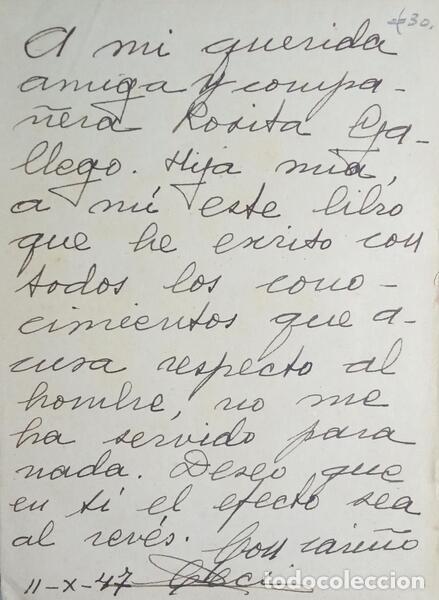 30.
A mi querida
amiga y compa-
ñera Rosita Ga-
llego. Hija mía,
a mí este libro
que he exrito con
todos los cono-
cimientos que a-
cusa respecto al
hombre, no me
ha servido para
nada. Deseo que
en tí el efecto sea
al revés. Con cariño
11-X-47
todocoleccion